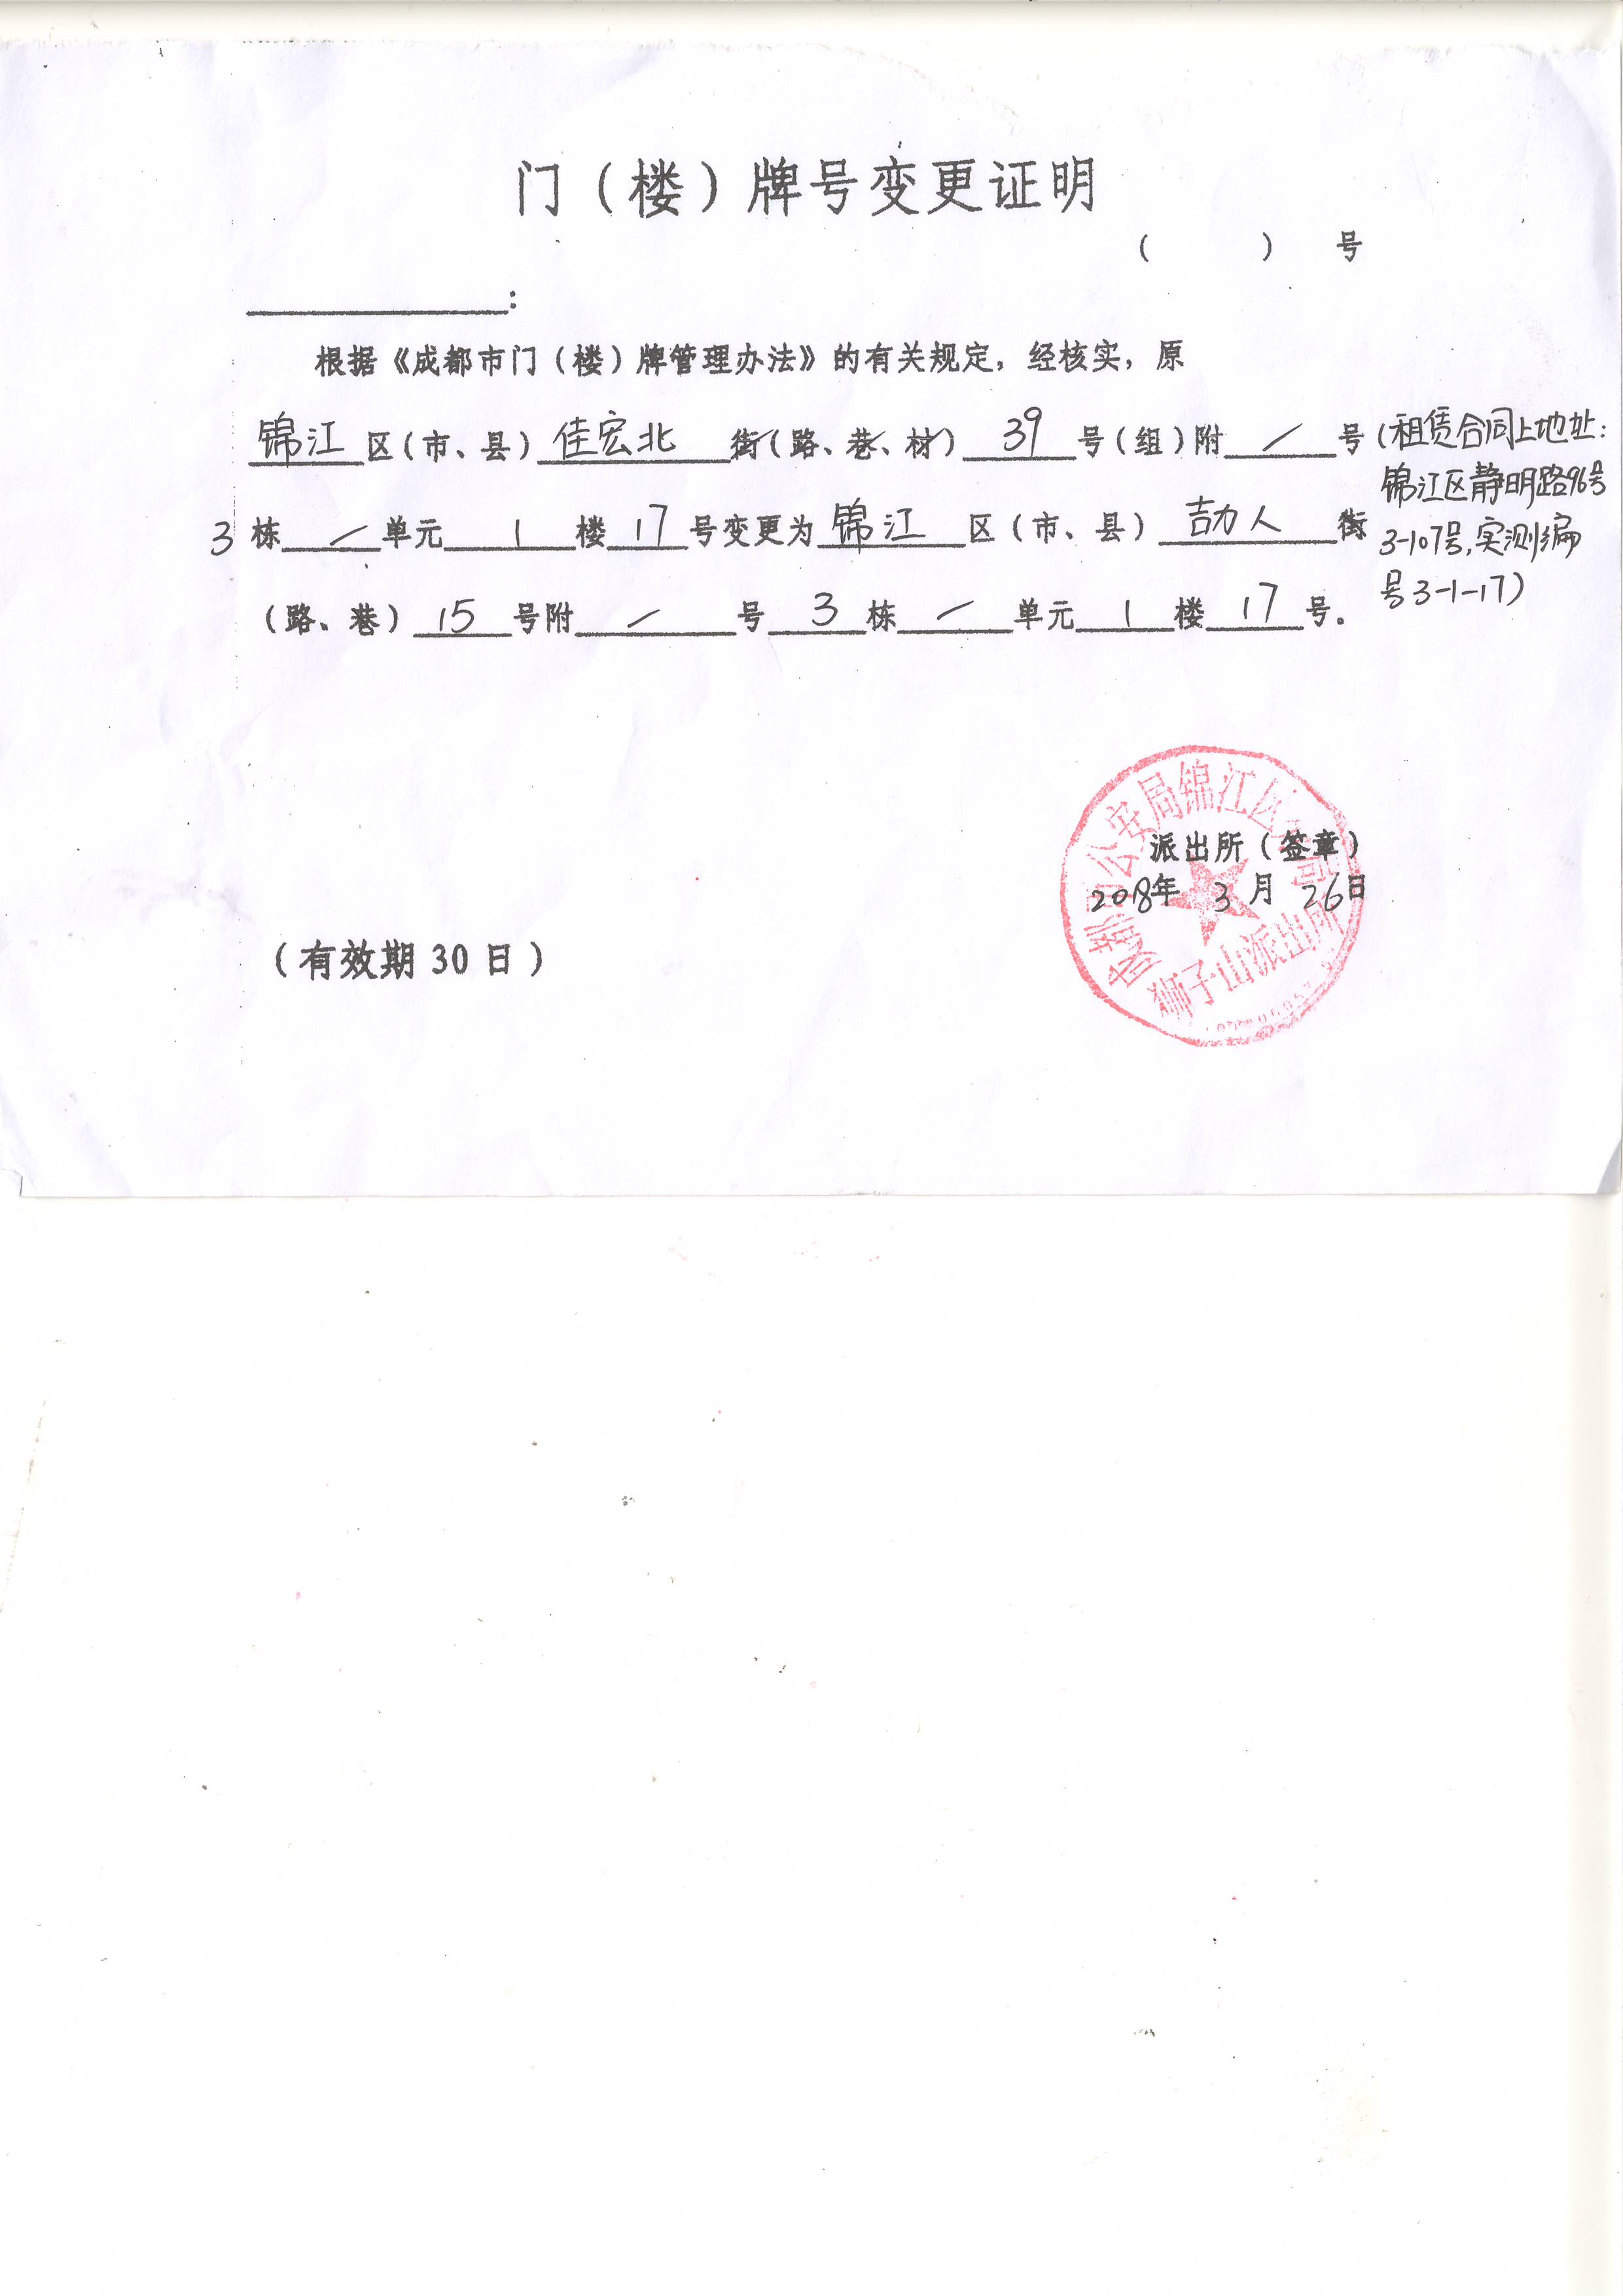 门（楼）牌号变更证明
（ ） 号
：
根据《成都市门（楼）牌管理办法》的有关规定，经核实，原
锦江区（市、县）佳宏北街（路、巷、村）39号（组）附／号（租赁合同上地址：
锦江区静明路96号
3栋／单元1楼17号变更为锦江区（市、县）劼人街
3-107号,实测编
号3-1-17）
（路、巷）15号附／号3栋／单元1楼17号。
成都市公安局锦江区分局
派出所（签章）
2018年3月26日
狮子山派出所
（有效期30日）